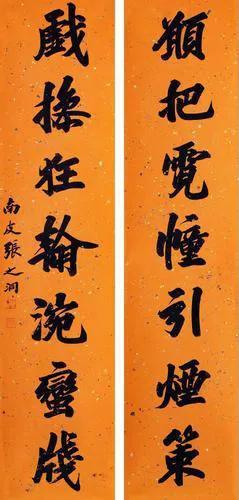 顧把霓幢引煙策
戲操狂翰涴蠻牋
南皮張之洞